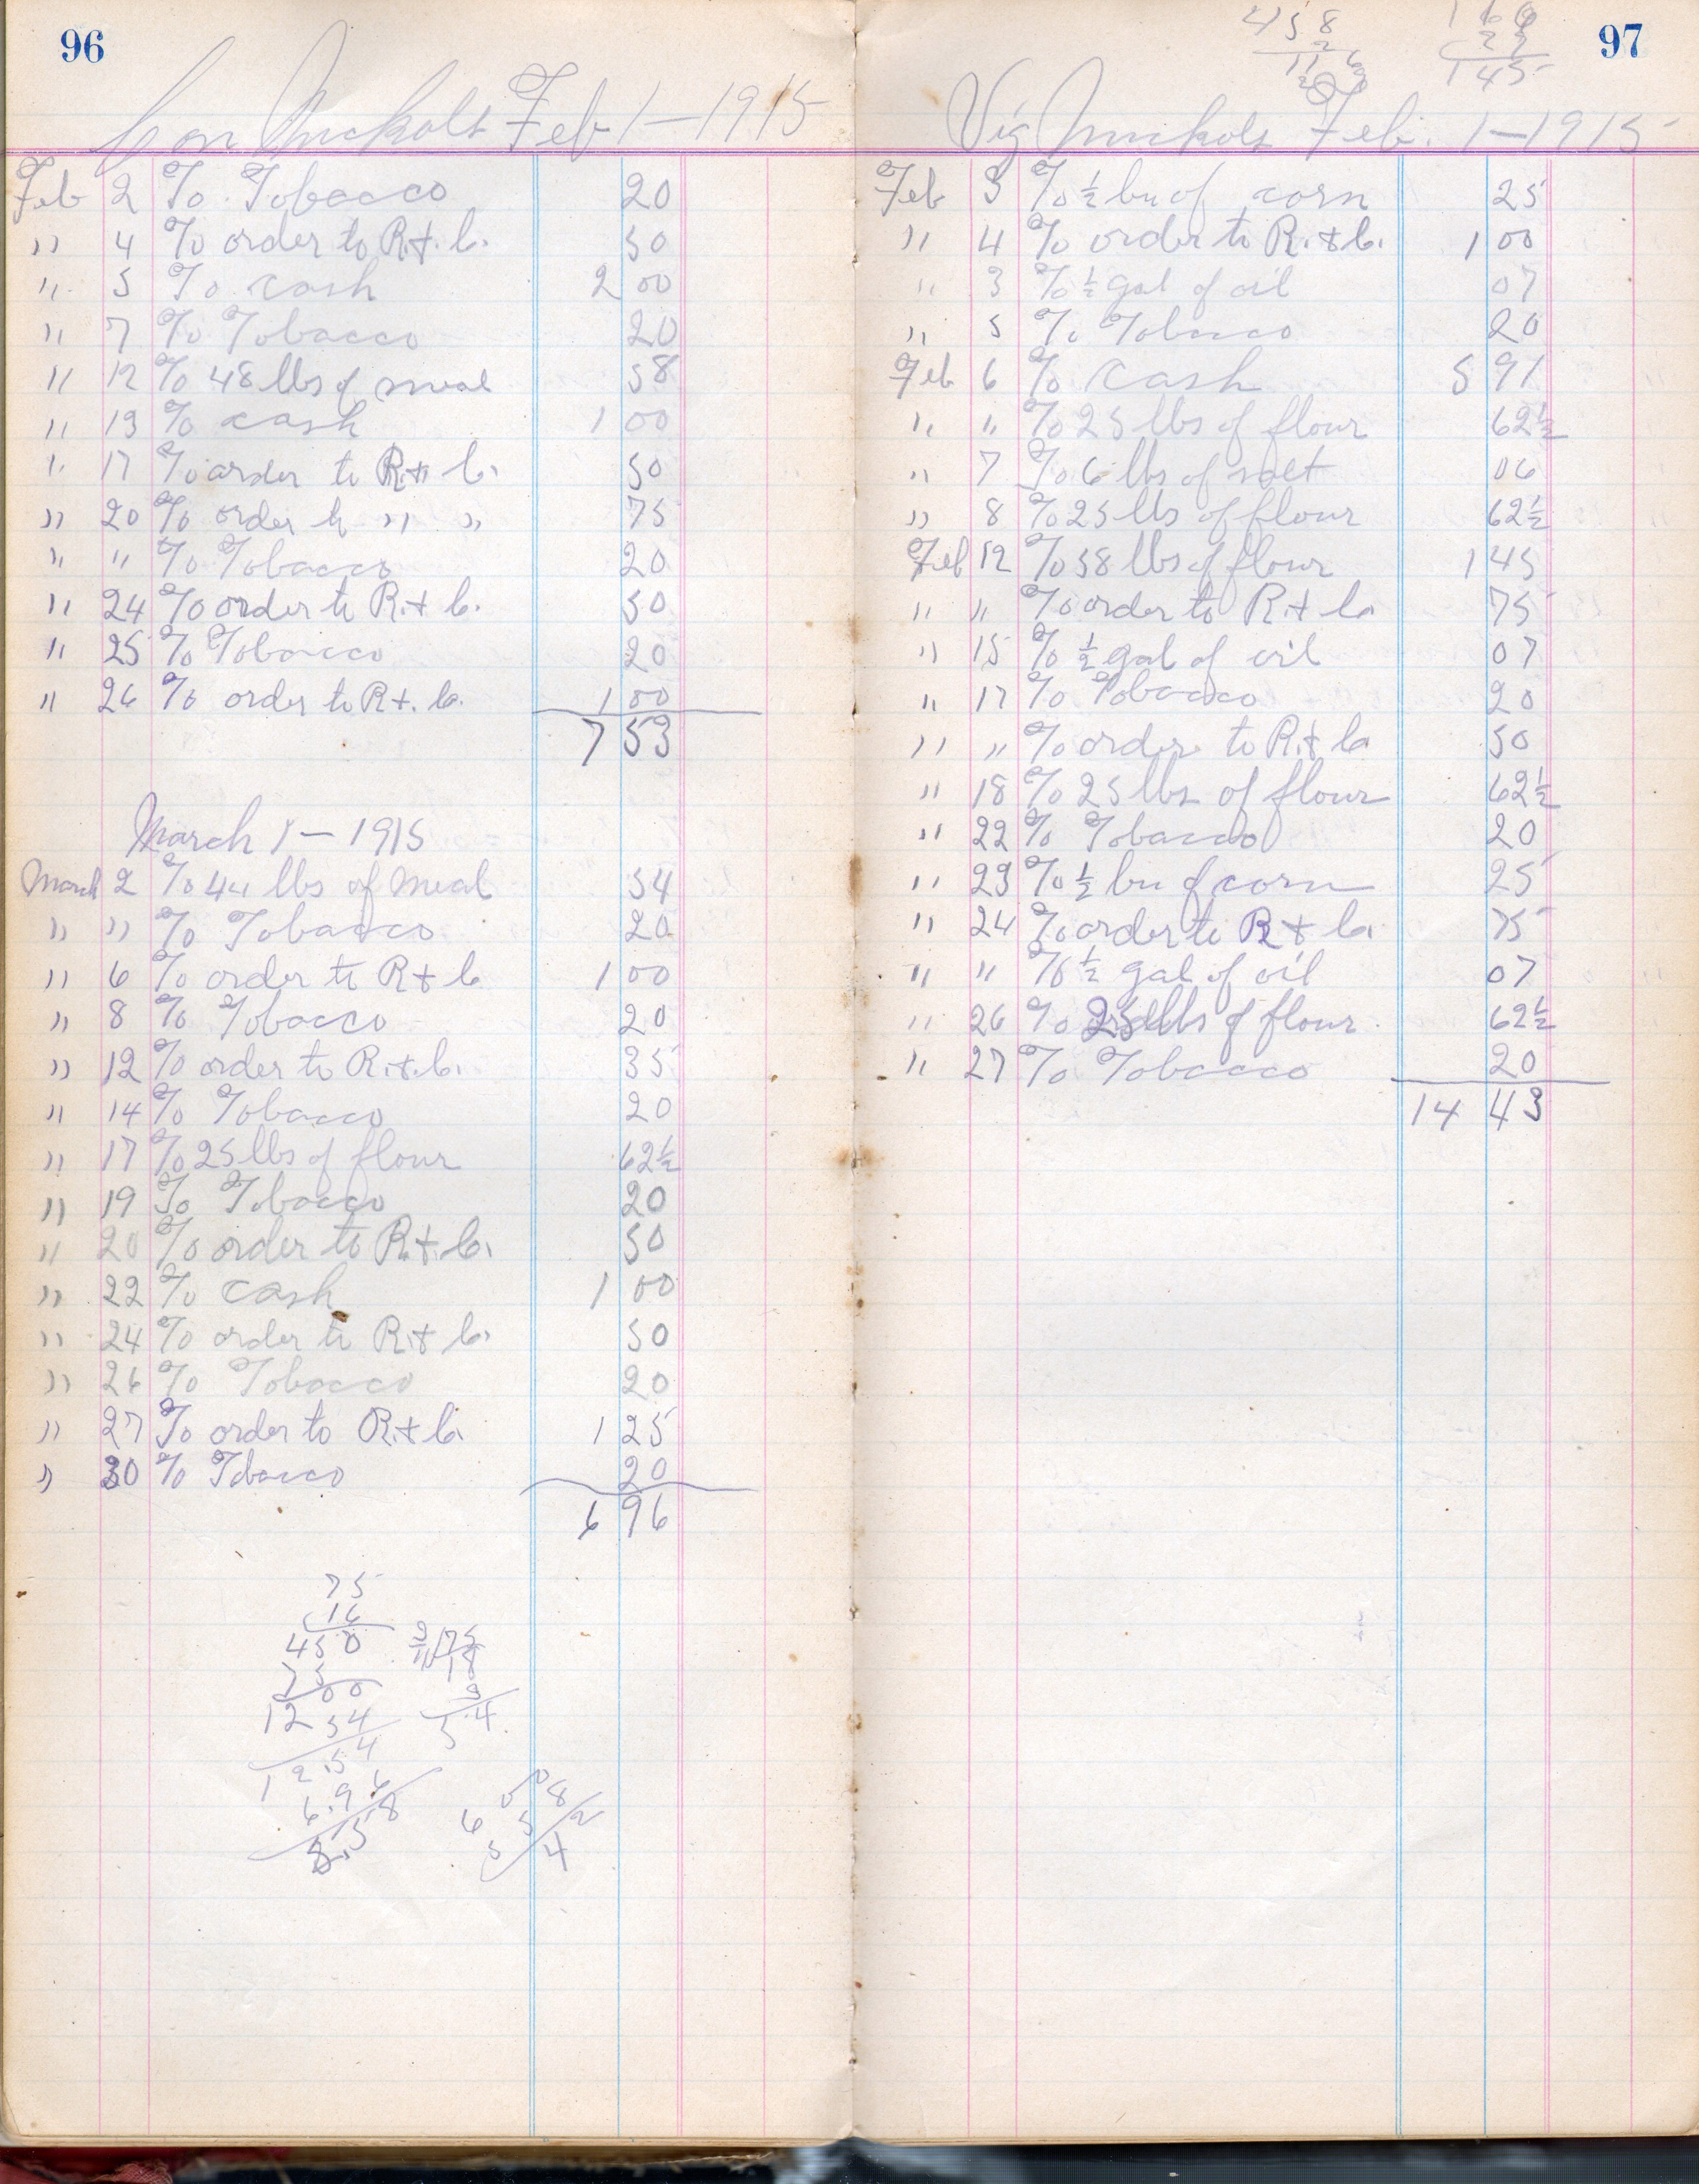 96
Con Nuckols Feb 1 — 1915
Feb 2 % Tobacco 20
" 4 % order to R. & C. 50
" 5 % cash 2 00
" 7 % Tobacco 20
" 12 % 48 lbs of meal 58
" 13 % cash 1 00
" 17 % order to R & C. 50
" 20 % order to " " 75
" " % Tobacco 20
" 24 % order to R. & C. 50
" 25 % Tobacco 20
" 26 % order to R & C. 1 00
7 53
March 1 — 1915
March 2 % 44 lbs of meal 54
" " % Tobacco 20
" 6 % order to R & C 1 00
" 8 % Tobacco 20
" 12 % order to R. & C. 35
" 14 % Tobacco 20
" 17 % 25 lbs of flour 62½
" 19 % Tobacco 20
" 20 % order to R. & C. 50
" 22 % cash 1 00
" 24 % order to R. & C. 50
" 26 % Tobacco 20
" 27 % order to R. & C. 1 25
" 30 % Tobacco 20
6 96
75
16
450
75
1200
54
12.54
6.96
5.58
97
458
166
145
Vig Nuckols Feb. 1 — 1915
Feb 3 % ½ bu of corn 25
" 4 % order to R. & C. 1 00
" 3 % ½ gal of oil 07
" 5 % Tobacco 20
Feb 6 % cash 5 91
" " % 25 lbs of flour 62½
" 7 % 6 lbs of salt 06
" 8 % 25 lbs of flour 62½
Feb 12 % 58 lbs of flour 1 45
" " % order to R & Co 75
" 15 % ½ gal of oil 07
" 17 % Tobacco 20
" " % order to R. & Co 50
" 18 % 25 lbs of flour 62½
" 22 % Tobacco 20
" 23 % ½ bu of corn 25
" 24 % order to R & Co. 75
" " % ½ gal of oil 07
" 26 % 25 lbs of flour 62½
" 27 % Tobacco 20
14 43